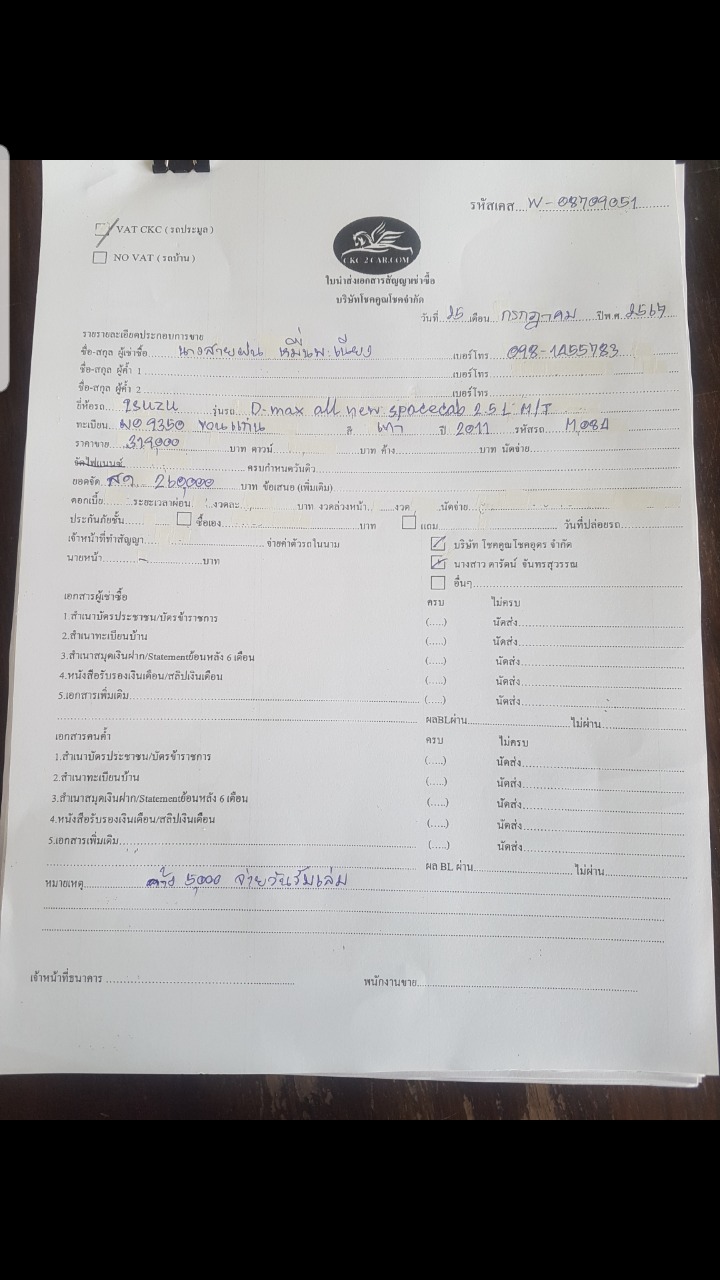 รหัสเคส....W-08709051
VAT CKC ( รถประมูล )
NO VAT ( รถบ้าน )
CKC 2 CAR.COM
ใบนำส่งเอกสารสัญญาเช่าซื้อ
บริษัทโชคคูณโชคจำกัด
วันที่ 25 เดือน กรกฎาคม ปีพ.ศ. 2567
รายรายละเอียดประกอบการขาย
ชื่อ-สกุล ผู้เช่าซื้อ นางสายฝน เบอร์โทร 098-1455783
ชื่อ-สกุล ผู้ค้ำ 1 เบอร์โทร
ชื่อ-สกุล ผู้ค้ำ 2 เบอร์โทร
ยี่ห้อรถ Isuzu รุ่นรถ D-max all new spacecab 2.5 L M/T
ทะเบียน 9350 ขอนแก่น สี เทา ปี 2011 รหัสรถ M084
ราคาขาย 319,000 บาท ดาวน์ บาท ค้าง บาท นัดจ่าย
จัดไฟแนนซ์ ครบกำหนดวันคิว
ยอดจัด สด 260,000 บาท ข้อเสนอ (เพิ่มเติม)
ดอกเบี้ย ระยะเวลาผ่อน งวดละ บาท งวดล่วงหน้า งวด นัดจ่าย
ประกันภัยชั้น ซื้อเอง บาท แถม วันที่ปล่อยรถ
เจ้าหน้าที่ทำสัญญา จ่ายค่าตัวรถในนาม บริษัท โชคคูณโชคอุดร จำกัด
นายหน้า - บาท นางสาว ดารัตน์ จันทรสุวรรณ
อื่นๆ
เอกสารผู้เช่าซื้อ ครบ ไม่ครบ
1.สำเนาบัตรประชาชน/บัตรข้าราชการ (.....) นัดส่ง
2.สำเนาทะเบียนบ้าน (.....) นัดส่ง
3.สำเนาสมุดเงินฝาก/Statementย้อนหลัง 6 เดือน (.....) นัดส่ง
4.หนังสือรับรองเงินเดือน/สลิปเงินเดือน (.....) นัดส่ง
5.เอกสารเพิ่มเติม (.....) นัดส่ง
ผลBLผ่าน ไม่ผ่าน
เอกสารคนค้ำ ครบ ไม่ครบ
1.สำเนาบัตรประชาชน/บัตรข้าราชการ (.....) นัดส่ง
2.สำเนาทะเบียนบ้าน (.....) นัดส่ง
3.สำเนาสมุดเงินฝาก/Statementย้อนหลัง 6 เดือน (.....) นัดส่ง
4.หนังสือรับรองเงินเดือน/สลิปเงินเดือน (.....) นัดส่ง
5.เอกสารเพิ่มเติม (.....) นัดส่ง
ผล BL ผ่าน ไม่ผ่าน
หมายเหตุ ค้าง 5,000 จ่ายวันรับเล่ม
เจ้าหน้าที่ธนาคาร พนักงานขาย